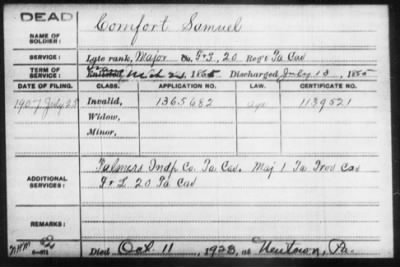 DEAD
NAME OF SOLDIER: Comfort Samuel
SERVICE: Late rank, Major Co. F+S, 20 Reg't Pa Cav
TERM OF SERVICE: Enlisted 1865 Discharged July 13, 1865
DATE OF FILING. CLASS. APPLICATION NO. LAW. CERTIFICATE NO.
1907 July 25 Invalid, 1365682 age 1139521
Widow,
Minor,
ADDITIONAL SERVICES: Palmers Indp Co. Pa Cav. Maj 1 Pa Prov Cav
F+S 20 Pa Cav
REMARKS:
Died Oct 11, 1923, at Newtown, Pa.